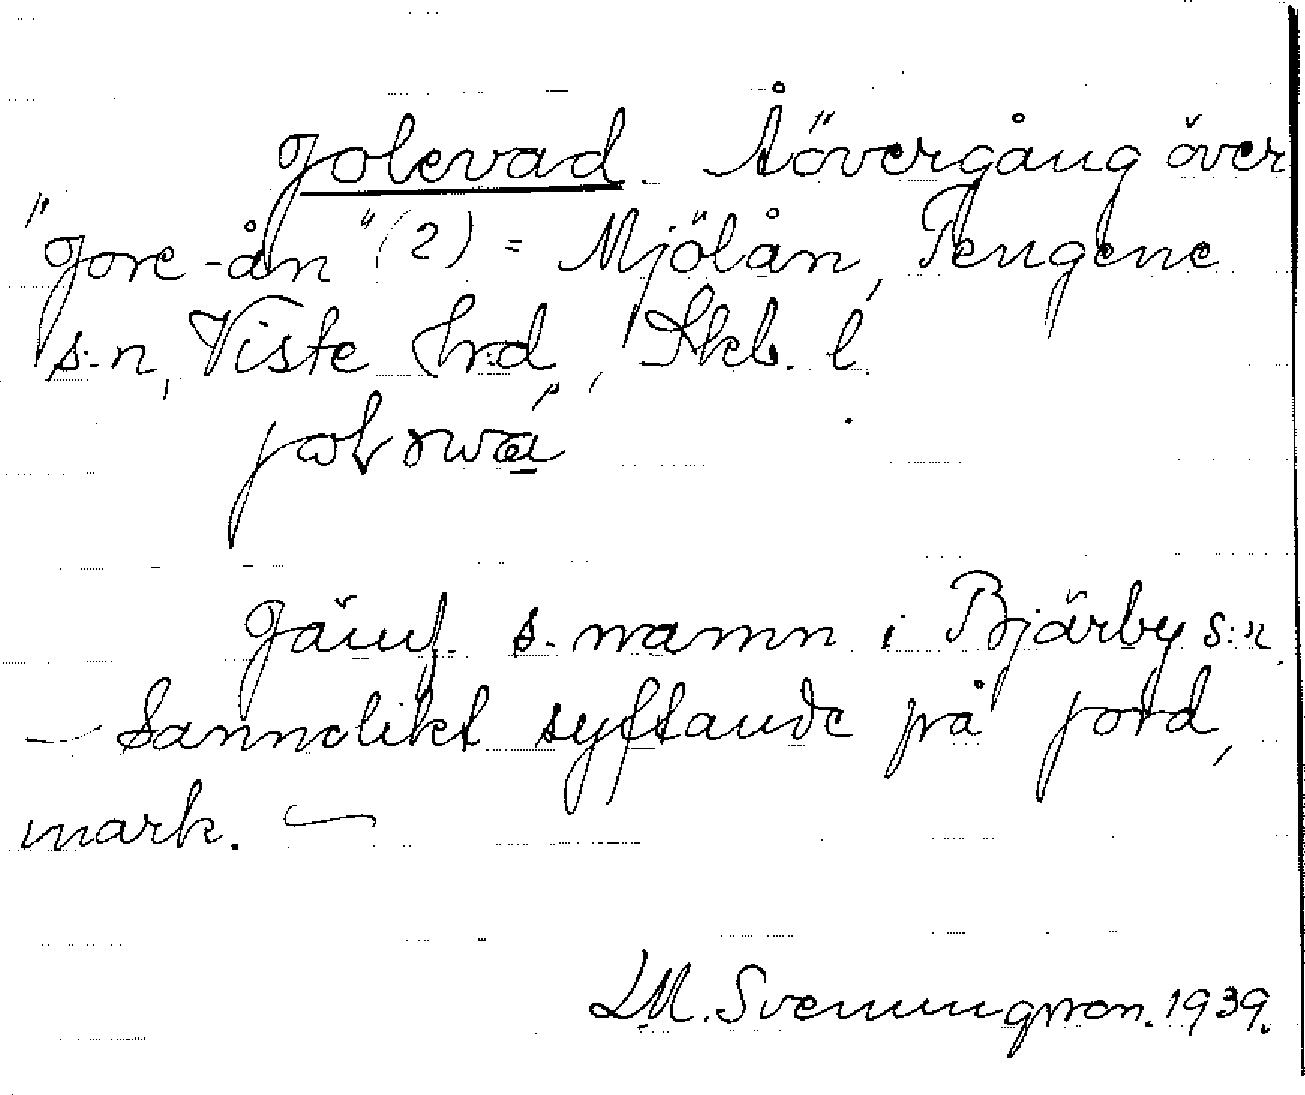 Jolevad. Åövergång över
"Jore-ån" (2) = Mjölån, Tengene
s:n, Viste h:d, Skb. l.
Jämf. s. namn i Bjärby s:n.
— Sannolikt syftande på jord,
mark. —
L.M. Svenungsson. 1939.